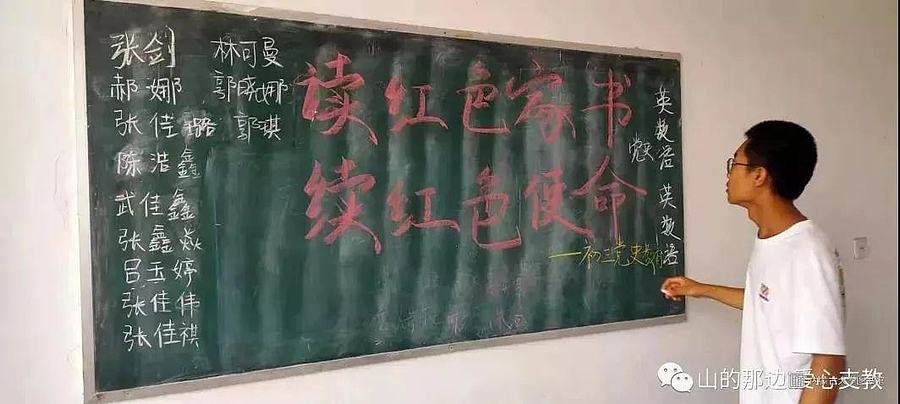 张剑
郝娜
张佳璐
陈浩鑫
武佳鑫
张鑫焱
吕玉婷
张佳伟
张佳祺
林可曼
郭晓娜
郭琪
读红色家书
续红色使命
——初三党史教育
英数语
党史
英数语
山的那边爱心支教